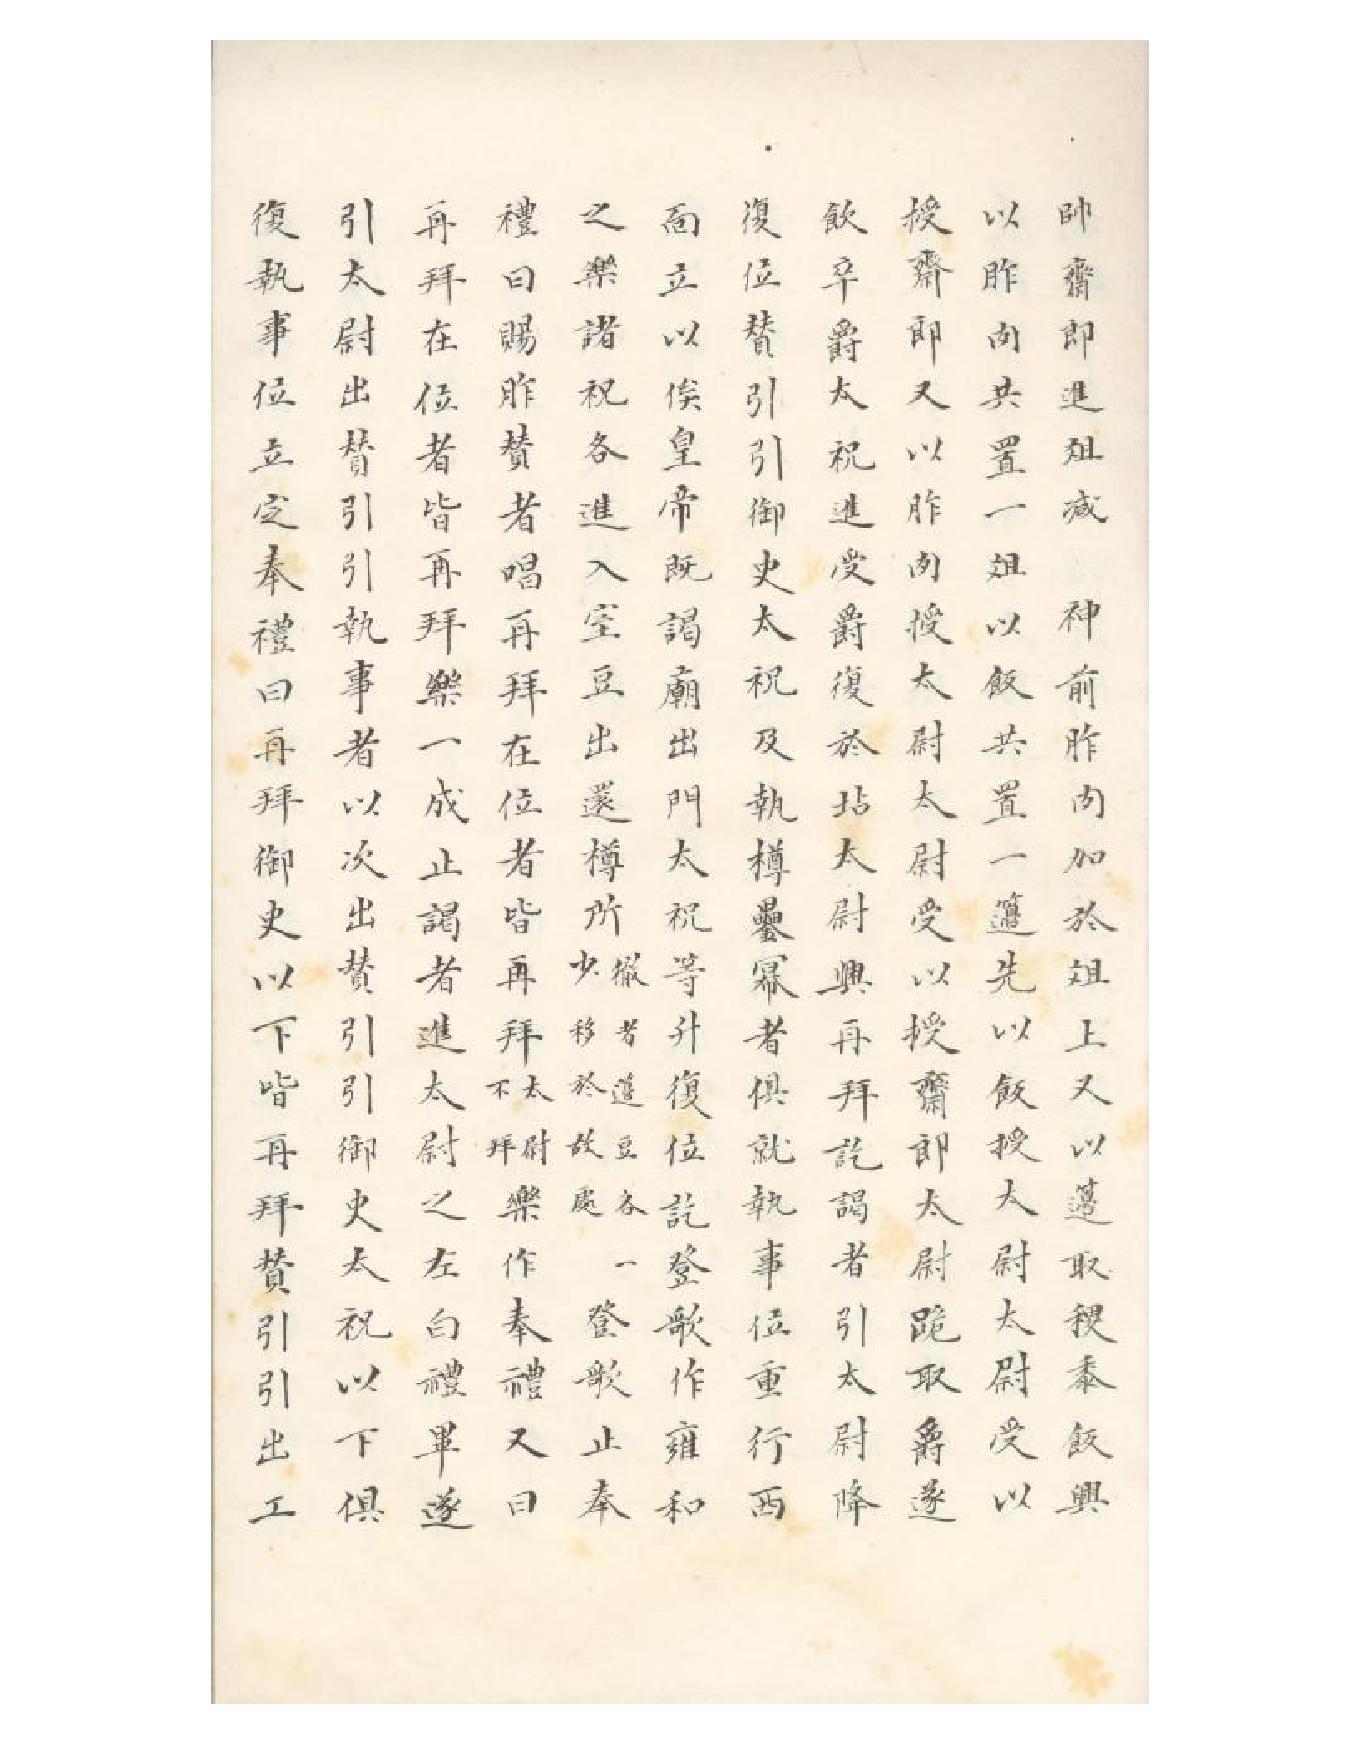 帥齋郎進俎减　神前胙肉加於俎上又以籩取稷黍飯興
以胙肉共置一俎以飯共置一籩先以飯授太尉太尉受以
授齋郎又以胙肉授太尉太尉受以授齋郎太尉跪取爵遂
飲卒爵太祝進受爵復於坫太尉興再拜訖謁者引太尉降
復位贊引引御史太祝及執樽罍冪者俱就執事位重行西
面立以俟皇帝既謁廟出門太祝等升復位訖登歌作雍和
之樂諸祝各進入室豆出還樽所徹者籩豆各一少移於故處登歌止奉
禮曰賜胙贊者唱再拜在位者皆再拜太尉不拜樂作奉禮又曰
再拜在位者皆再拜樂一成止謁者進太尉之左白禮畢遂
引太尉出贊引引執事者以次出贊引引御史太祝以下俱
復執事位立定奉禮曰再拜御史以下皆再拜贊引引出工